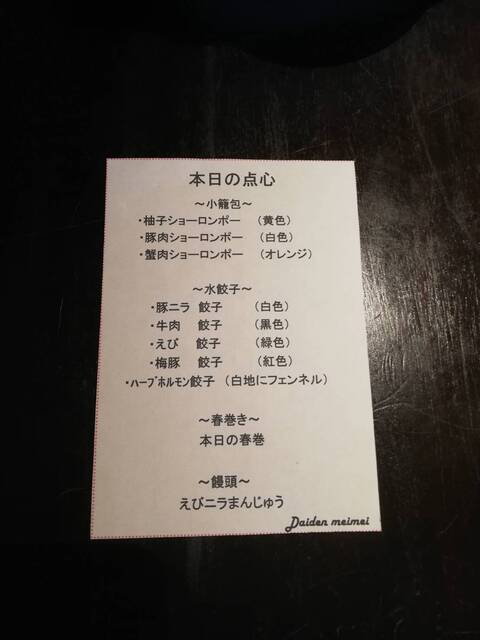 本日の点心
～小籠包～
・柚子ショーロンポー （黄色）
・豚肉ショーロンポー （白色）
・蟹肉ショーロンポー （オレンジ）
～水餃子～
・豚ニラ 餃子 （白色）
・牛肉 餃子 （黒色）
・えび 餃子 （緑色）
・梅豚 餃子 （紅色）
・ﾊｰﾌﾞﾎﾙﾓﾝ餃子 （白地にフェンネル）
～春巻き～
本日の春巻
～饅頭～
えびニラまんじゅう
Daiden meimei